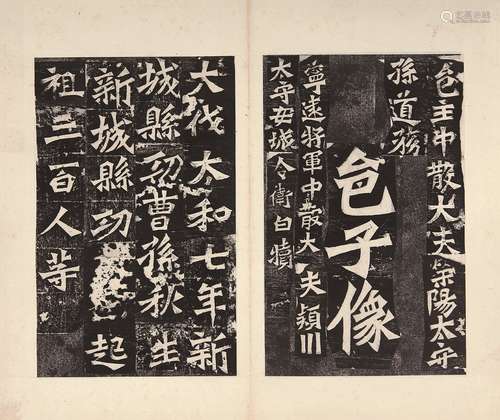 邑主中散大夫滎陽太守
孫道務
邑子像
寧遠將軍中散大夫潁川
太守安城令衛白犢
大伐太和七年新
城縣功曹孫秋生
新城縣功起
祖二百人等